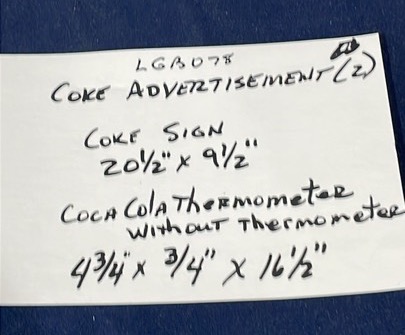 LGB078
COKE ADVERTISEMENT (2)
COKE SIGN
20 1/2" x 9 1/2"
COCA Cola Thermometer
Without Thermometer
4 3/4" x 3/4" x 16 1/2"